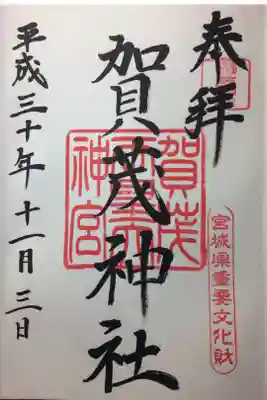 奉拝
宮城県重要文化財
賀茂神社
賀茂
神宮
平成三十年十一月三日